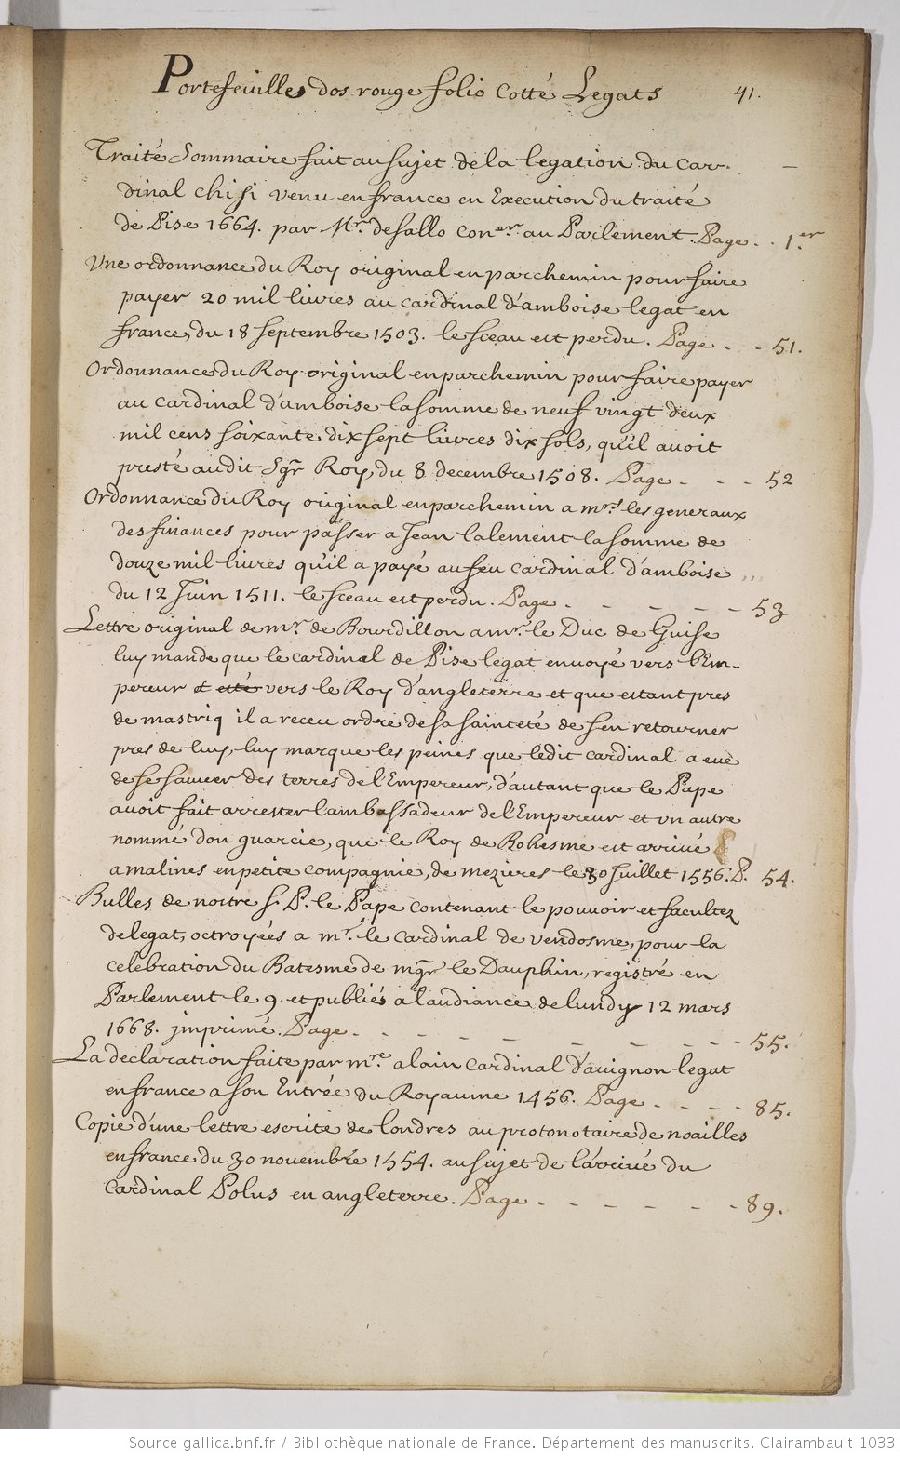 Portefeuilles dos rouge folio cotté Legats 41.
Traité Sommaire fait au sujet de la legation du car-
dinal chisi venu en france en Execution du traité
de Pise 1664. par Mr. de sallo coner. au Parlement. Page . . 1.er
Une ordonnance du Roy original en parchemin pour faire
payer 20 mil livres au cardinal d'amboise legat en
france, du 18 septembre 1503. le sceau est perdu. Page . . - 51.
Ordonnance du Roy original en parchemin pour faire payer
au cardinal d'amboise la somme de neuf vingt deux
mil cens soixante dix sept livres dix sols, qu'il avoit
presté audit Sgr Roy, du 8 decembre 1508. Page - - - 52
Ordonnance du Roy original en parchemin a mrs. les generaux
des finances pour passer a Jean lalement la somme de
douze mil livres qu'il a payé au feu cardinal d'amboise
du 12 Juin 1511. le sceau est perdu. Page - - - - - 53
Lettre original de mr. de Bourdillon a mr. le Duc de Guise
luy mande que le cardinal de Pise legat envoyé vers l'Em-
pereur et vers le Roy d'angleterre et que estant pres
de mastriq il a receu ordre de sa sainteté de s'en retourner
pres de luy, luy marque les peines que ledit cardinal a eue
de se sauver des terres de l'Empereur, d'autant que le Pape
avoit fait arrester l'ambassadeur de l'Empereur et un autre
nommé don guarcie, que le Roy de Bohesme est arrivé
a malines en petite compagnie, de mezieres le 30 Juillet 1556. P. 54.
Bulles de nostre S. P. le Pape contenant le pouvoir et facultez
de legat, octroyées a mr. le cardinal de vendosme, pour la
celebration du Batesme de mgr le Dauphin, registré en
Parlement le 9 et publiés a l'audiance de lundy 12 mars
1668. imprimé. Page - - - - - - - - - 55.
La declaration faite par mre alain cardinal d'avignon legat
en france a son Entrée du Royaume 1456. Page - - - - 85.
Copie d'une lettre escrite de londres au protonotaire de noailles
en france, du 30 novembre 1554. au sujet de l'arrivé du
Cardinal Polus en angleterre. Page - - - - - - 89.
Source gallica.bnf.fr / Bibliothèque nationale de France. Département des manuscrits. Clairambault 1033